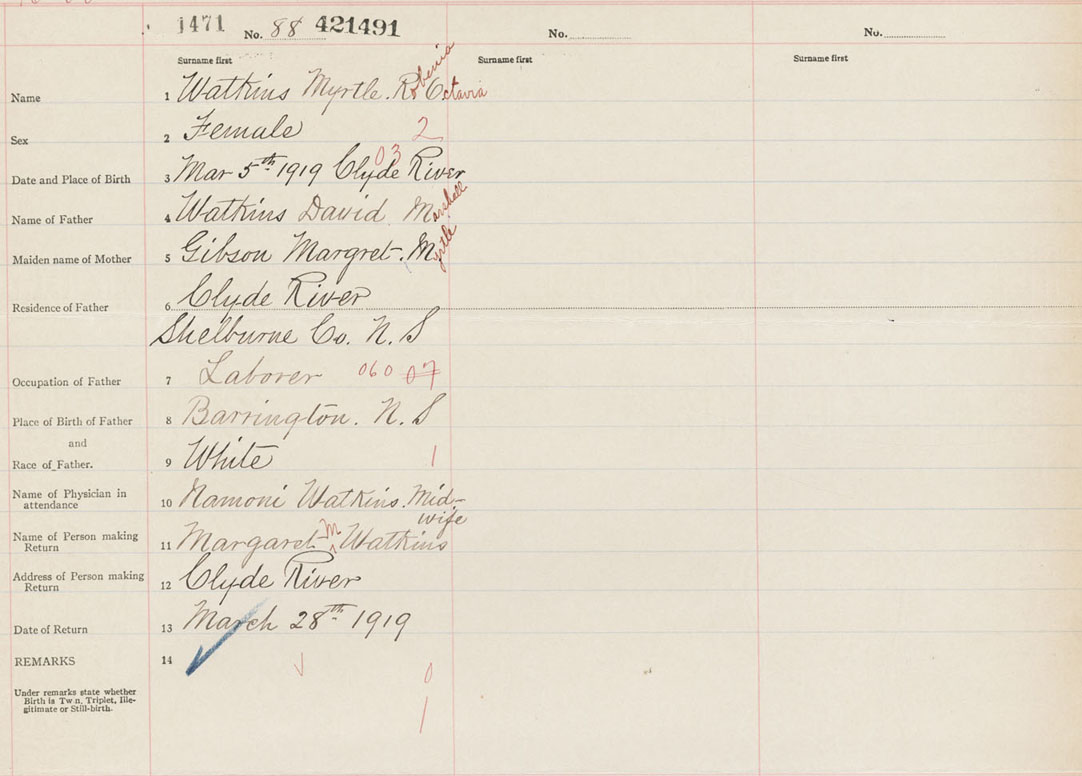 1471 No. 88 421491 No. No.
Surname first Surname first Surname first
Name 1 Watkins Myrtle. Robenia Octavia
Sex 2 Female 2
03
Date and Place of Birth 3 Mar 5th 1919 Clyde River
Name of Father 4 Watkins David Marshall
Maiden name of Mother 5 Gibson Margret. Myrtle
Residence of Father 6 Clyde River
Shelburne Co. N. S
Occupation of Father 7 Laborer 060 07
Place of Birth of Father 8 Barrington. N. S
and
Race of Father. 9 White 1
Name of Physician in
attendance 10 Namoni Watkins. Mid-
wife
Name of Person making
Return 11 Margaret M Watkins
Address of Person making
Return 12 Clyde River
Date of Return 13 March 28th 1919
REMARKS 14
0
Under remarks state whether
Birth is Twn, Triplet, Ille-
gitimate or Still-birth.
1